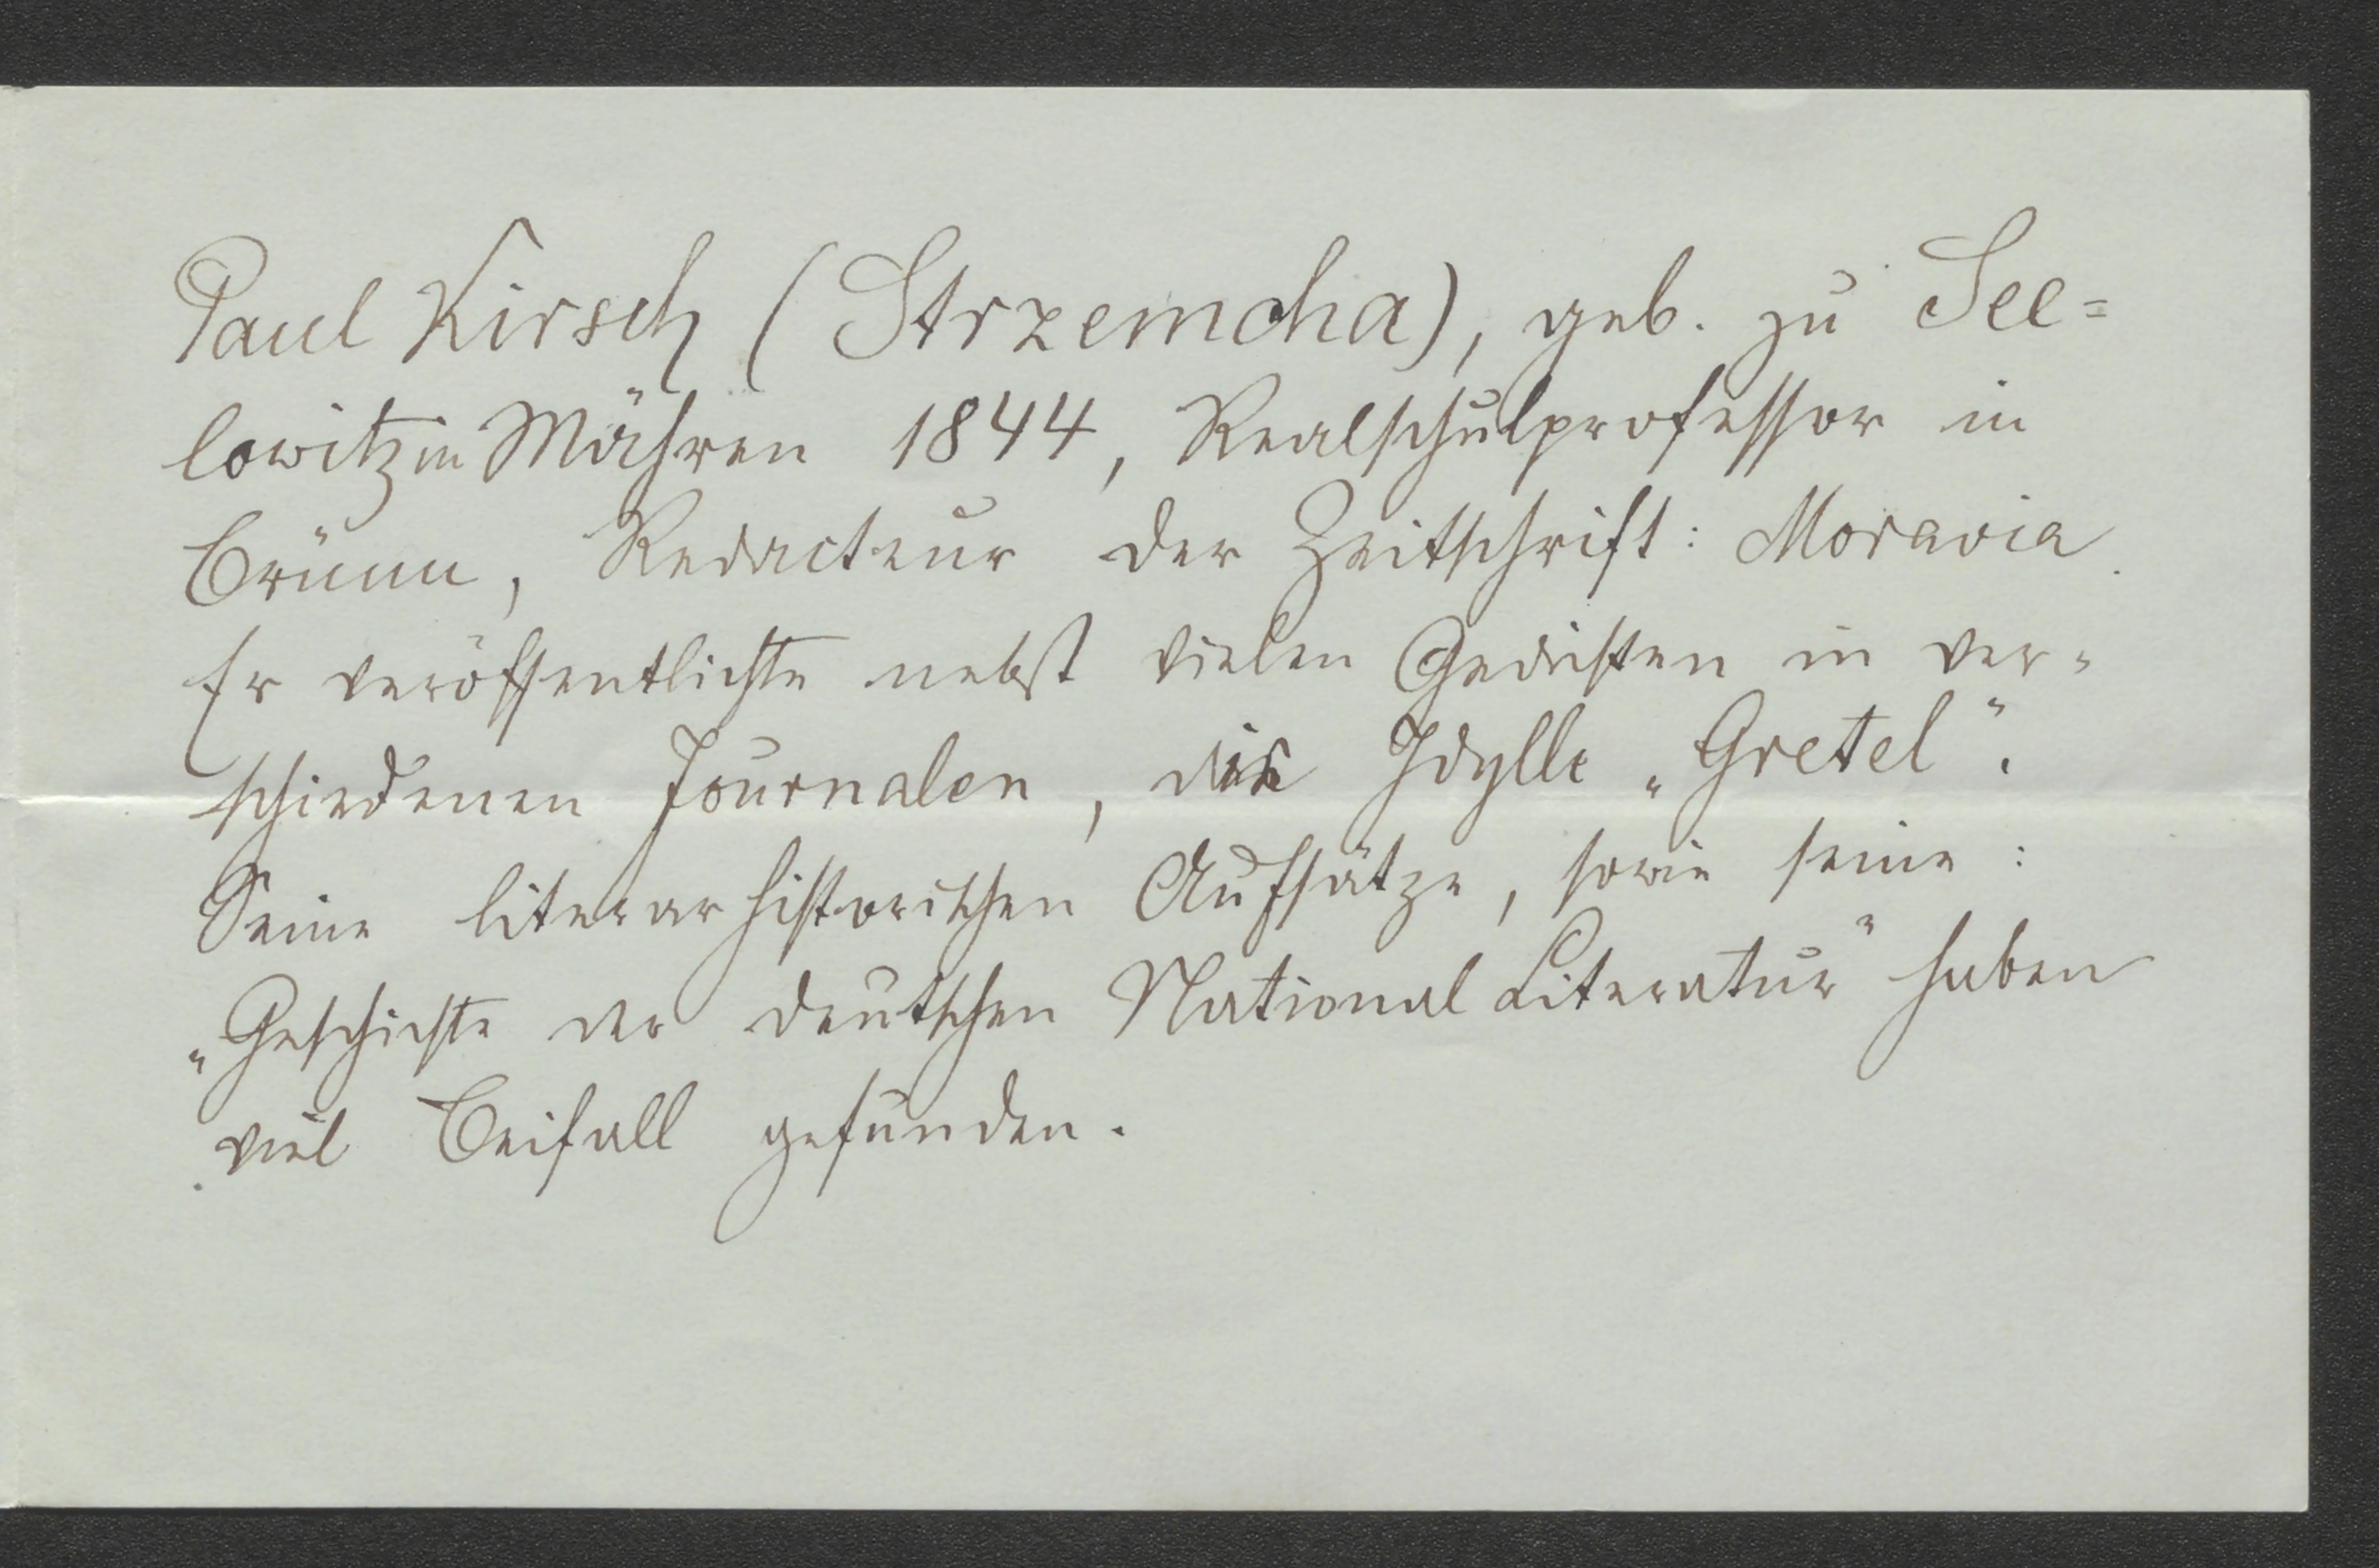 Paul Kirsch (Strzemcha), geb. zu See=
lowitz in Mähren 1844, Realschulprofessor in
Brünn, Redacteur der Zeitschrift: Moravia.
Er veröffentlichte nebst vielen Gedichten in ver-
schiedenen Journalen, die Idylle „Gretel".
Seine literarhistorischen Aufsätze, sowie seine:
„Geschichte der deutschen National Literatur" haben
viel Beifall gefunden.